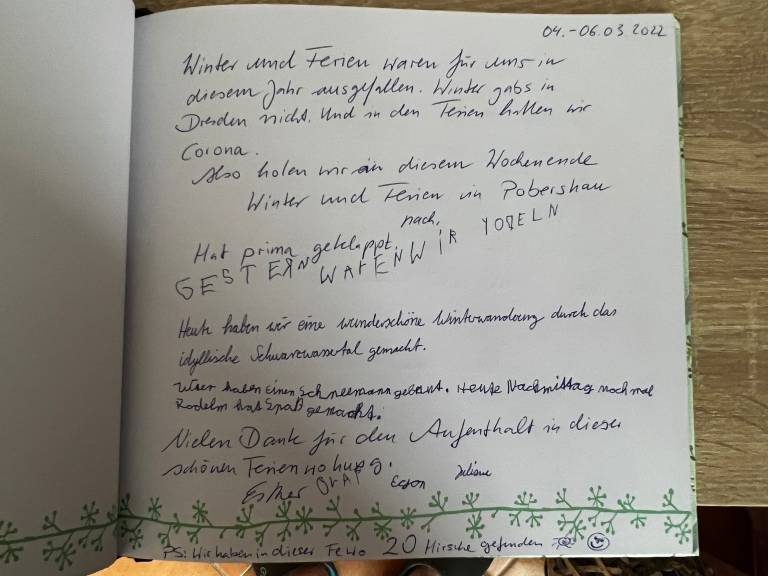 04.-06.03 2022
Winter und Ferien waren für uns in
diesem Jahr ausgefallen. Winter gabs in
Dresden nicht. Und in den Ferien hatten wir
Corona.
Also holen wir an diesem Wochenende
Winter und Ferien in Pobershau
nach.
Hat prima geklappt.
GESTERN WAREN WIR YODELN
Heute haben wir eine wunderschöne Winterwanderung durch das
idyllische Schwarzwassertal gemacht.
Wier haben einen Schneemann gebaut. Heute Nachmittag nochmal
Rodeln hat Spaß gemacht.
Vielen Dank für den Aufenthalt in dieser
schönen Ferienwohung.
Esther OLAF Egon Juliane
PS: Wir haben in dieser Fewo 20 Hirsche gefunden